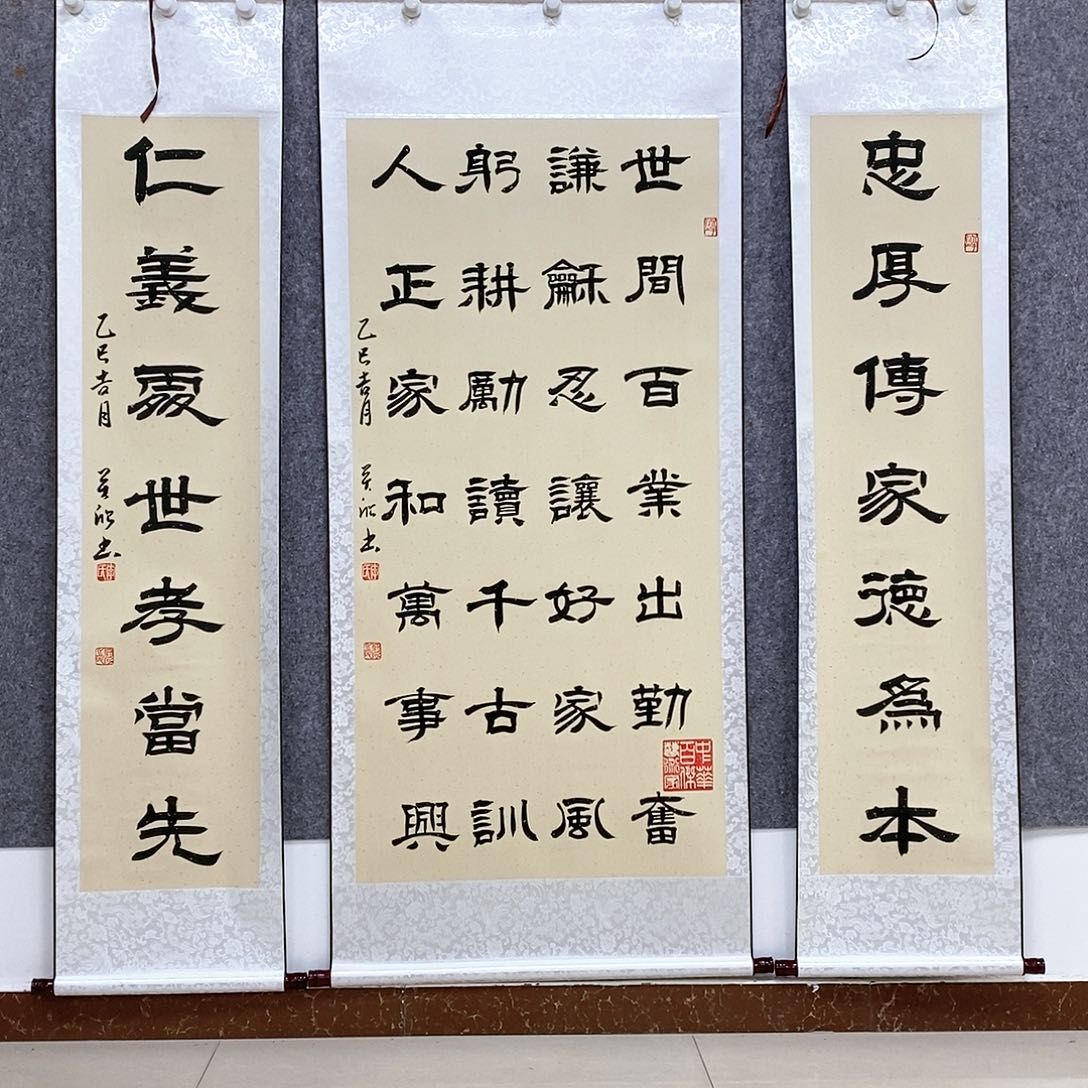 忠厚傳家德爲本
世間百業出勤奮
謙龢忍讓好家風
躬耕勵讀千古訓
人正家和萬事興
乙巳吉月 欣书
中華百傑
仁義處世孝當先
乙巳吉月 欣书